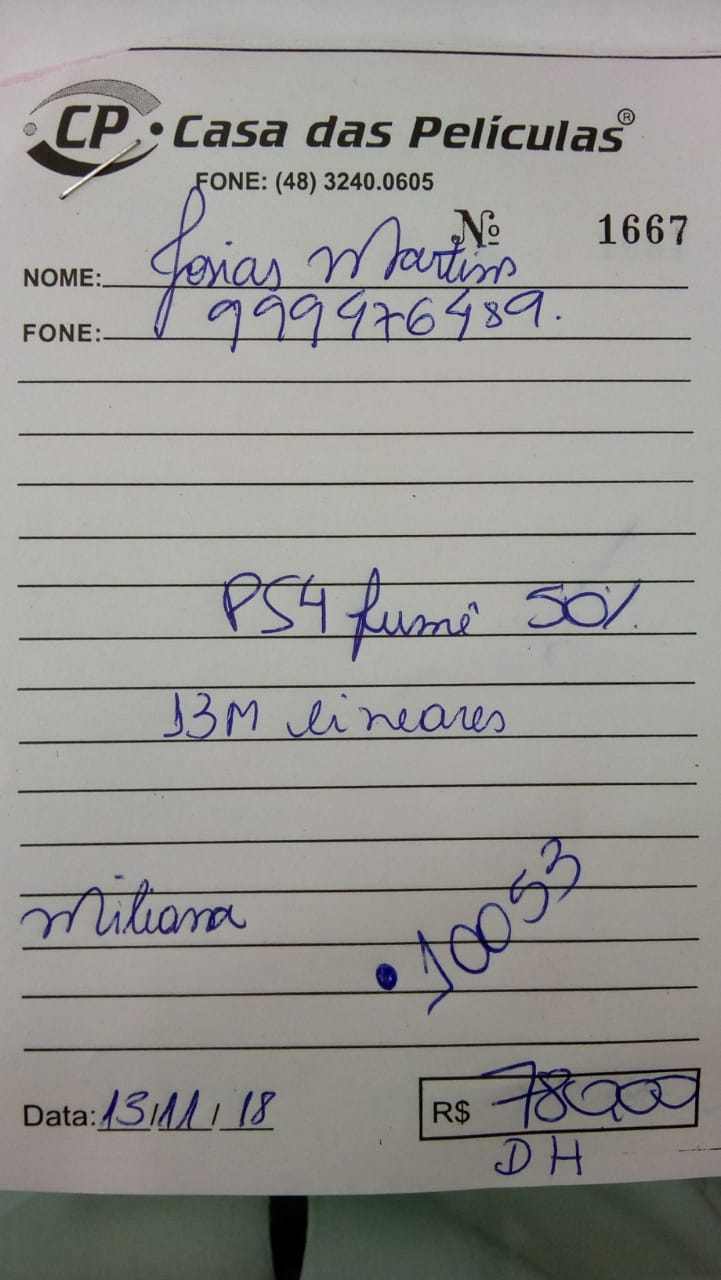 CP • Casa das Películas®
FONE: (48) 3240.0605
Nº 1667
NOME: Josias Martins
FONE: 999976489.
PS4 fumê 50%
13M lineares
Miliana
• 10053
Data: 13/11/18 R$ 780,00
DH